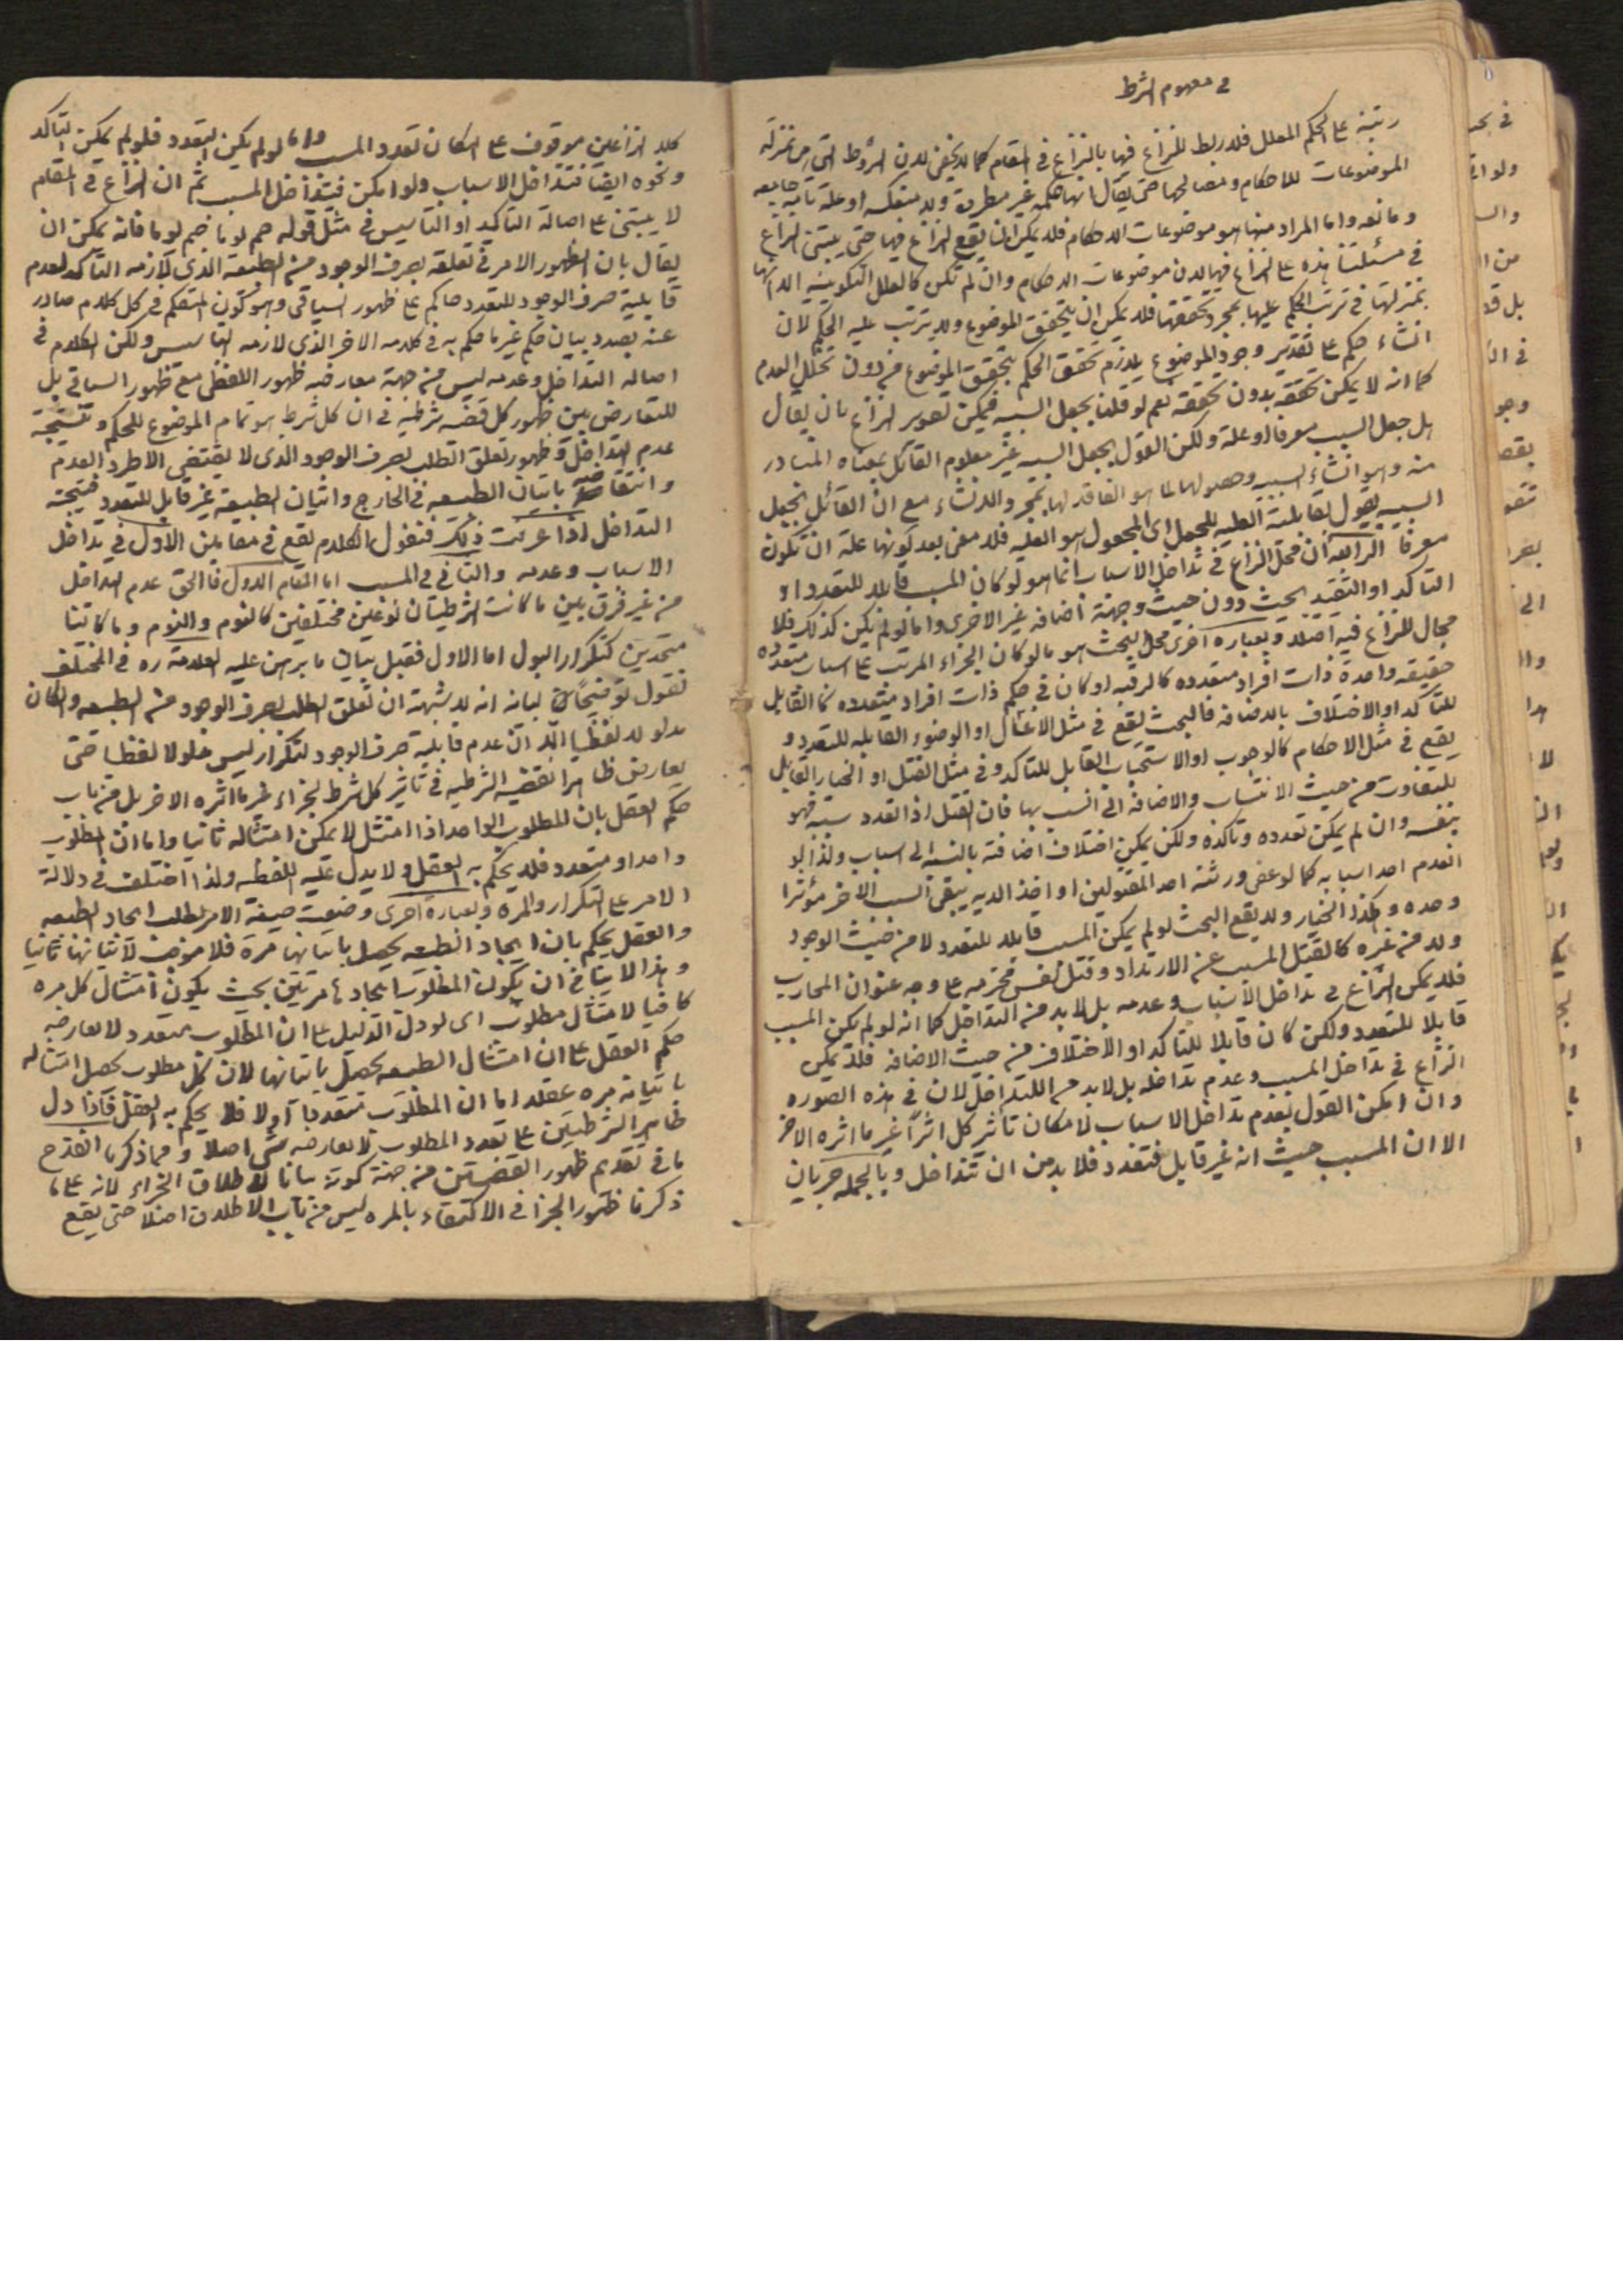 في مفهوم الشرط
رتبة على الحكم المعلل فلا ربط للنزاع فيها بالنزاع في المقام كما لا يخفى لان الشروط التي هي بمنزلة
الموضوعات للاحكام ومصالحها حتى يقال انها حكمة غير مطردة ولا منعكسه او علة تامه جامعه
ومانعه واما المراد منها هو موضوعات الاحكام فلا يمكن ان يقع النزاع فيها حتى يبتنى النزاع
في مسئلتنا هذه على النزاع فيها لان موضوعات الاحكام وان لم تكن كالعلل التكوينيه الا انها
بمنزلتها في ترتب الحكم عليها بمجرد تحققها فلا يمكن ان يتحقق الموضوع ولا يترتب عليه الحكم لان
انشاء حكم على تقدير وجود الموضوع يلازم تحقق الحكم بتحقق الموضوع من دون تخلل العدم
كما انه لا يمكن تحققه بدون تحققه نعم لو قلنا بجعل السببيه فيمكن تصوير النزاع بان يقال
هل جعل السبب معرفا او علة ولكن القول بجعل السببيه غير معلوم القائل بمعناه المتبادر
منه وهو انشاء السببيه وحصولها لما هو الفاقد لها بمجرد الانشاء مع ان القائل بجعل
السببيه يقول بقابلية العليه للجعل اى المجعول هو العليه فلا معنى بعد كونها علة ان تكون
معرفا الرابعه ان محل النزاع في تداخل الاسباب انما هو لو كان المسبب قابلا للتعدد او
التاكد او التقييد بحيث دون حيث وجهة اضافه غير الاخرى واما لو لم يكن كذلك فلا
مجال للنزاع فيه اصلا وبعباره اخرى محل البحث هو ما لو كان الجزاء المرتب على اسباب متعدده
حقيقه واحدة ذات افراد متعدده كالرقبه او كان في حكم ذات افراد متعدده كالقابل
للتاكد او الاختلاف بالاضافه فالبحث يقع في مثل الاغسال او الوضوء القابله للتعدد و
يقع في مثل الاحكام كالوجوب او الاستحباب القابل للتاكد وفي مثل القتل او الخيار القابل
للتفاوت من حيث الانتساب والاضافه الى السبب بها فان القتل اذا تعدد سببه فهو
بنفسه وان لم يمكن تعدده وتاكده ولكن يمكن اختلاف اضافته بالنسبه الى اسباب ولذا لو
انعدم احد اسبابه كما لو عفى ورثة احد المقتولين او اخذ الديه يبقى السبب الاخر مؤثرا
وحده وهكذا الخيار ولا يقع البحث لو لم يكن المسبب قابلا للتعدد لا من حيث الوجود
ولا من غيره كالقتل المسبب عن الارتداد وقتل نفس محترمه على وجه عنوان المحارب
فلا يمكن النزاع في تداخل الاسباب وعدمه بل لا بد من التداخل كما انه لو لم يكن المسبب
قابلا للتعدد ولكن كان قابلا للتاكد او الاختلاف من حيث الاضافه فلا يمكن
النزاع في تداخل المسبب وعدم تداخله بل لا بد من التداخل لان في هذه الصوره
وان امكن القول بعدم تداخل الاسباب لامكان تأثير كل اثرا غير ما اثره الاخر
الا ان المسبب حيث انه غير قابل فتعدد فلا بد من ان تتداخل وبالجمله جريان
كلا النزاعين موقوف على امكان تعدد المسبب واما لو لم يكن ليتعدد فلو لم يمكن التاكد
ونحوه ايضا فتتداخل الاسباب ولو امكن فيتداخل المسبب ثم ان النزاع في المقام
لا يبتنى على اصالة التاكيد او التاسيس في مثل قوله صم يوما صم يوما فانه يمكن ان
يقال بان ظهور الامر في تعلقه بصرف الوجود من الطبيعة الذي لازمه التاكد لعدم
قابلية صرف الوجود للتعدد حاكم على ظهور السياقى وهو كون المتكلم في كل كلام صادر
عنه بصدد بيان حكم غير ما حكم به في كلامه الاخر الذي لازمه التاسيس ولكن الكلام في
اصاله التداخل وعدمه ليس من جهة معارضه ظهور اللفظى مع ظهور السياقى بل
للتعارض بين ظهور كل قضيه شرطيه في ان كل شرط هو تمام الموضوع للحكم ونتيجة
عدم التداخل وظهور تعلق الطلب بصرف الوجود الذى لا يقتضى الا طرد العدم
وانتقاضه باتيان الطبيعه في الخارج واتيان الطبيعة غير قابل للتعدد فنتيجته
التداخل اذا عرفت ذلك فنقول الكلام يقع في مقامين الاول في تداخل
الاسباب وعدمه والثانى في المسبب اما المقام الاول فالحق عدم التداخل
من غير فرق بين ما كانت الشرطيتان نوعين مختلفين كالنوم والنوم وما كانتا
متحدين كتكرار البول اما الاول فقبل بيان ما برهن عليه العلامة ره في المختلف
نقول توضيحا لبيانه انه لا شبهة ان تعلق الطلب بصرف الوجود من الطبيعه وان كان
مدلولا لفظيا الا ان عدم قابلية صرف الوجود لتكرار ليس مدلولا لفظيا حتى
يعارض ظاهر القضيه الشرطيه في تأثير كل شرط لجزاء غير ما اثره الاخر بل من باب
حكم العقل بان المطلوب الواحد اذا امتثل لا يمكن امتثاله ثانيا واما ان المطلوب
واحد او متعدد فلا يحكم به العقل ولا يدل عليه اللفظ ولذا اختلف في دلالة
الامر على التكرار والمره وبعبارة اخرى وضعت صيغة الامر لطلب ايجاد الطبيعه
والعقل يحكم بان ايجاد الطبيعه يحصل باتيانها مرة فلا موضوع لاتيانها ثانيا
وهذا لا ينافى ان يكون المطلوب ايجادها مرتين بحيث يكون امتثال كل مره
كافيا لامتثال مطلوب اى لو دل الدليل على ان المطلوب متعدد لا يعارضه
حكم العقل على ان امتثال الطبيعه يحصل باتيانها لان كل مطلوب يحصل امتثاله
باتيانه مره عقلا اما ان المطلوب متعدد ام لا فلا يحكم به العقل فاذا دل
ظاهر الشرطيتين على تعدد المطلوب لا يعارضه شئ اصلا ومما ذكرنا انقدح
ما في تقديم ظهور القضيتين من جهة كونه بيانا لاطلاق الجزاء لانه على ما
ذكرنا ظهور الجزا في الاكتفاء بالمره ليس من باب الاطلاق اصلا حتى يقع